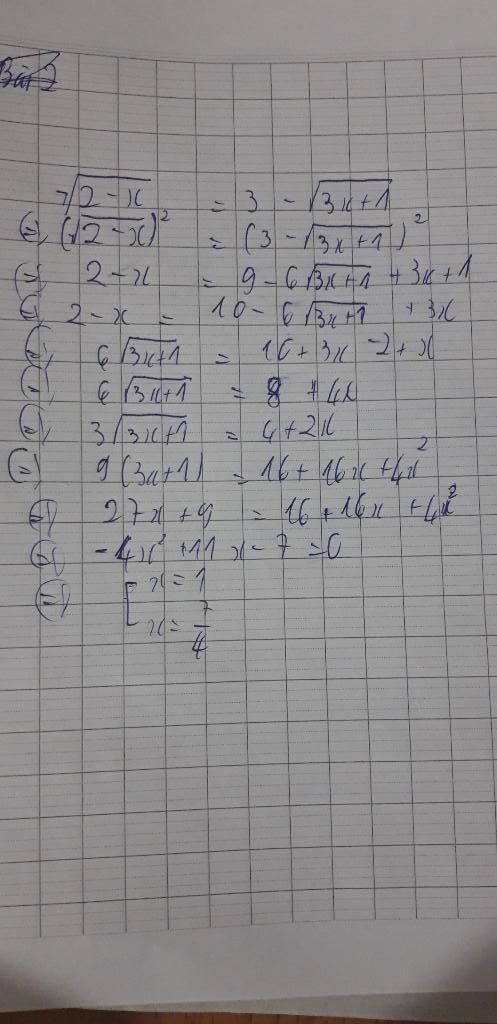 Bài 2
√(2-x) = 3 - √(3x+1)
⇔ (√(2-x))² = (3 - √(3x+1))²
⇔ 2-x = 9 - 6√(3x+1) + 3x+1
⇔ 2-x = 10 - 6√(3x+1) + 3x
⇔ 6√(3x+1) = 10 + 3x - 2 + x
⇔ 6√(3x+1) = 8 + 4x
⇔ 3√(3x+1) = 4 + 2x
⇔ 9(3x+1) = 16 + 16x + 4x²
⇔ 27x + 9 = 16 + 16x + 4x²
⇔ -4x² + 11x - 7 = 0
⇔ [ x = 1
x = 7/4